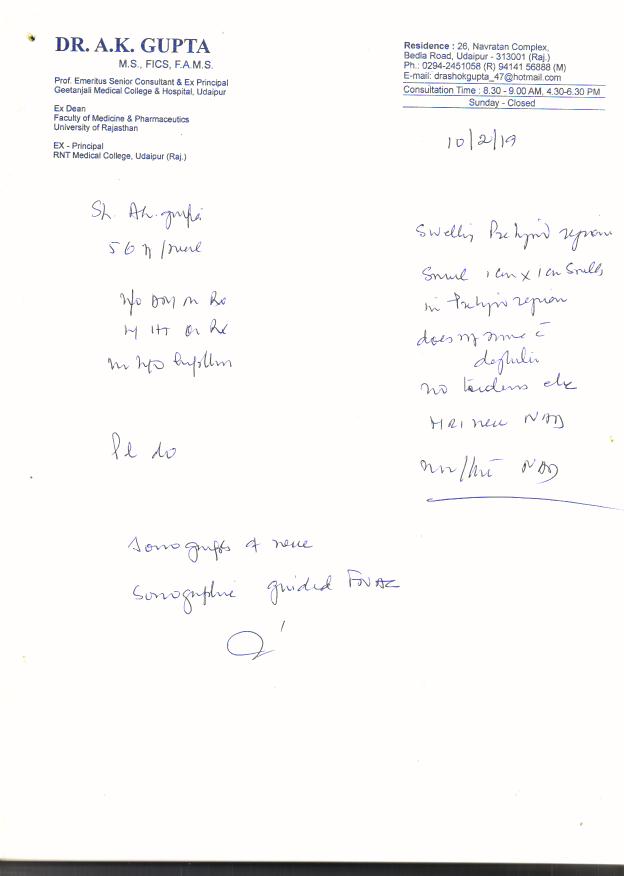 DR. A.K. GUPTA
M.S., FICS, F.A.M.S.
Prof. Emeritus Senior Consultant & Ex Principal
Geetanjali Medical College & Hospital, Udaipur
Ex Dean
Faculty of Medicine & Pharmaceutics
University of Rajasthan
EX - Principal
RNT Medical College, Udaipur (Raj.)
Residence : 26, Navratan Complex,
Bedla Road, Udaipur - 313001 (Raj.)
Ph.: 0294-2451058 (R) 94141 56888 (M)
E-mail: drashokgupta_47@hotmail.com
Consultation Time : 8.30 - 9.00 AM, 4.30-6.30 PM
Sunday - Closed
10/2/19
Sh. gupta
56 y/male
H/o DM on Rx
H/o HT on Rx
no H/o
Pl do
Swelling Prehyoid region
Small 1 cm x 1 cm Swelling
in Prehyoid region
does not move c̄
deglutition
no tenderness etc
MRI neck NAD
NAD
Sonography of neck
Sonographic guided FNAC